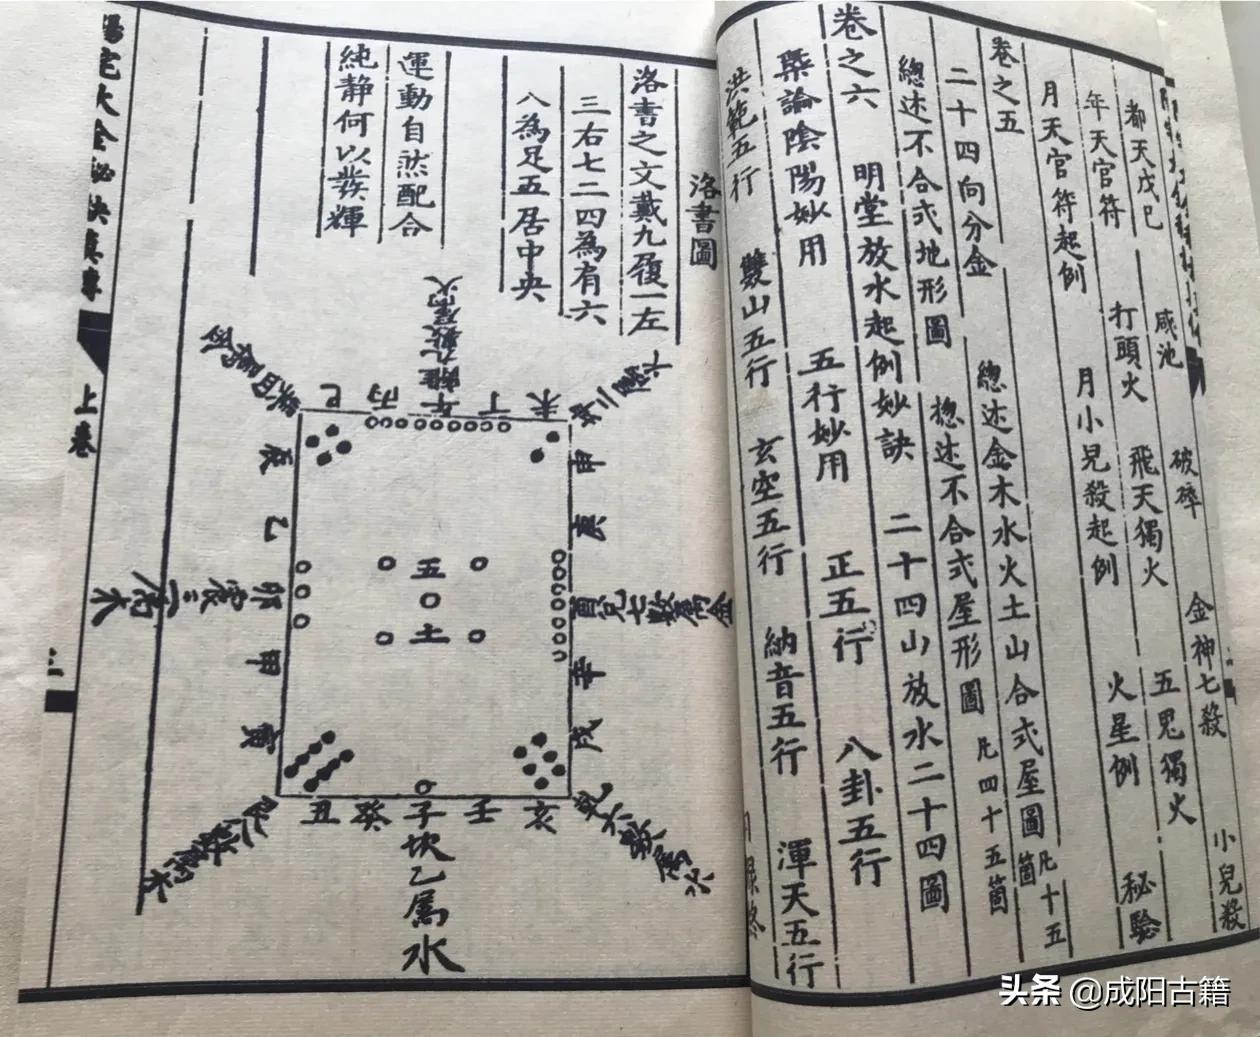 小兒殺
咸池 破碎 金神七殺
都天戊己 打頭火 飛天獨火 五鬼獨火 秘驗
年天官符 月小兒殺起例 火星例
月天官符起例
卷之五
二十四向分金 總述金木水火土山合式屋圖 凡十五箇
總述不合式地形圖 總述不合式屋形圖 凡四十五箇
卷之六 明堂放水起例妙訣 二十四山放水二十四圖
槩論陰陽妙用 五行妙用 正五行 八卦五行
洪範五行 雙山五行 玄空五行 納音五行 渾天五行
洛書圖
洛書之文戴九履一左
三右七二四為肩六
八為足五居中央
運動自然配合
純静何以發輝
離九數屬火
巳 丙 午 丁 未
辰 乙 卯 甲 寅
申 庚 酉 辛 戌
五
土
丑 癸 子 壬 亥
坎乙屬水
陽宅大全秘訣真傳
上卷
头条 @成阳古籍